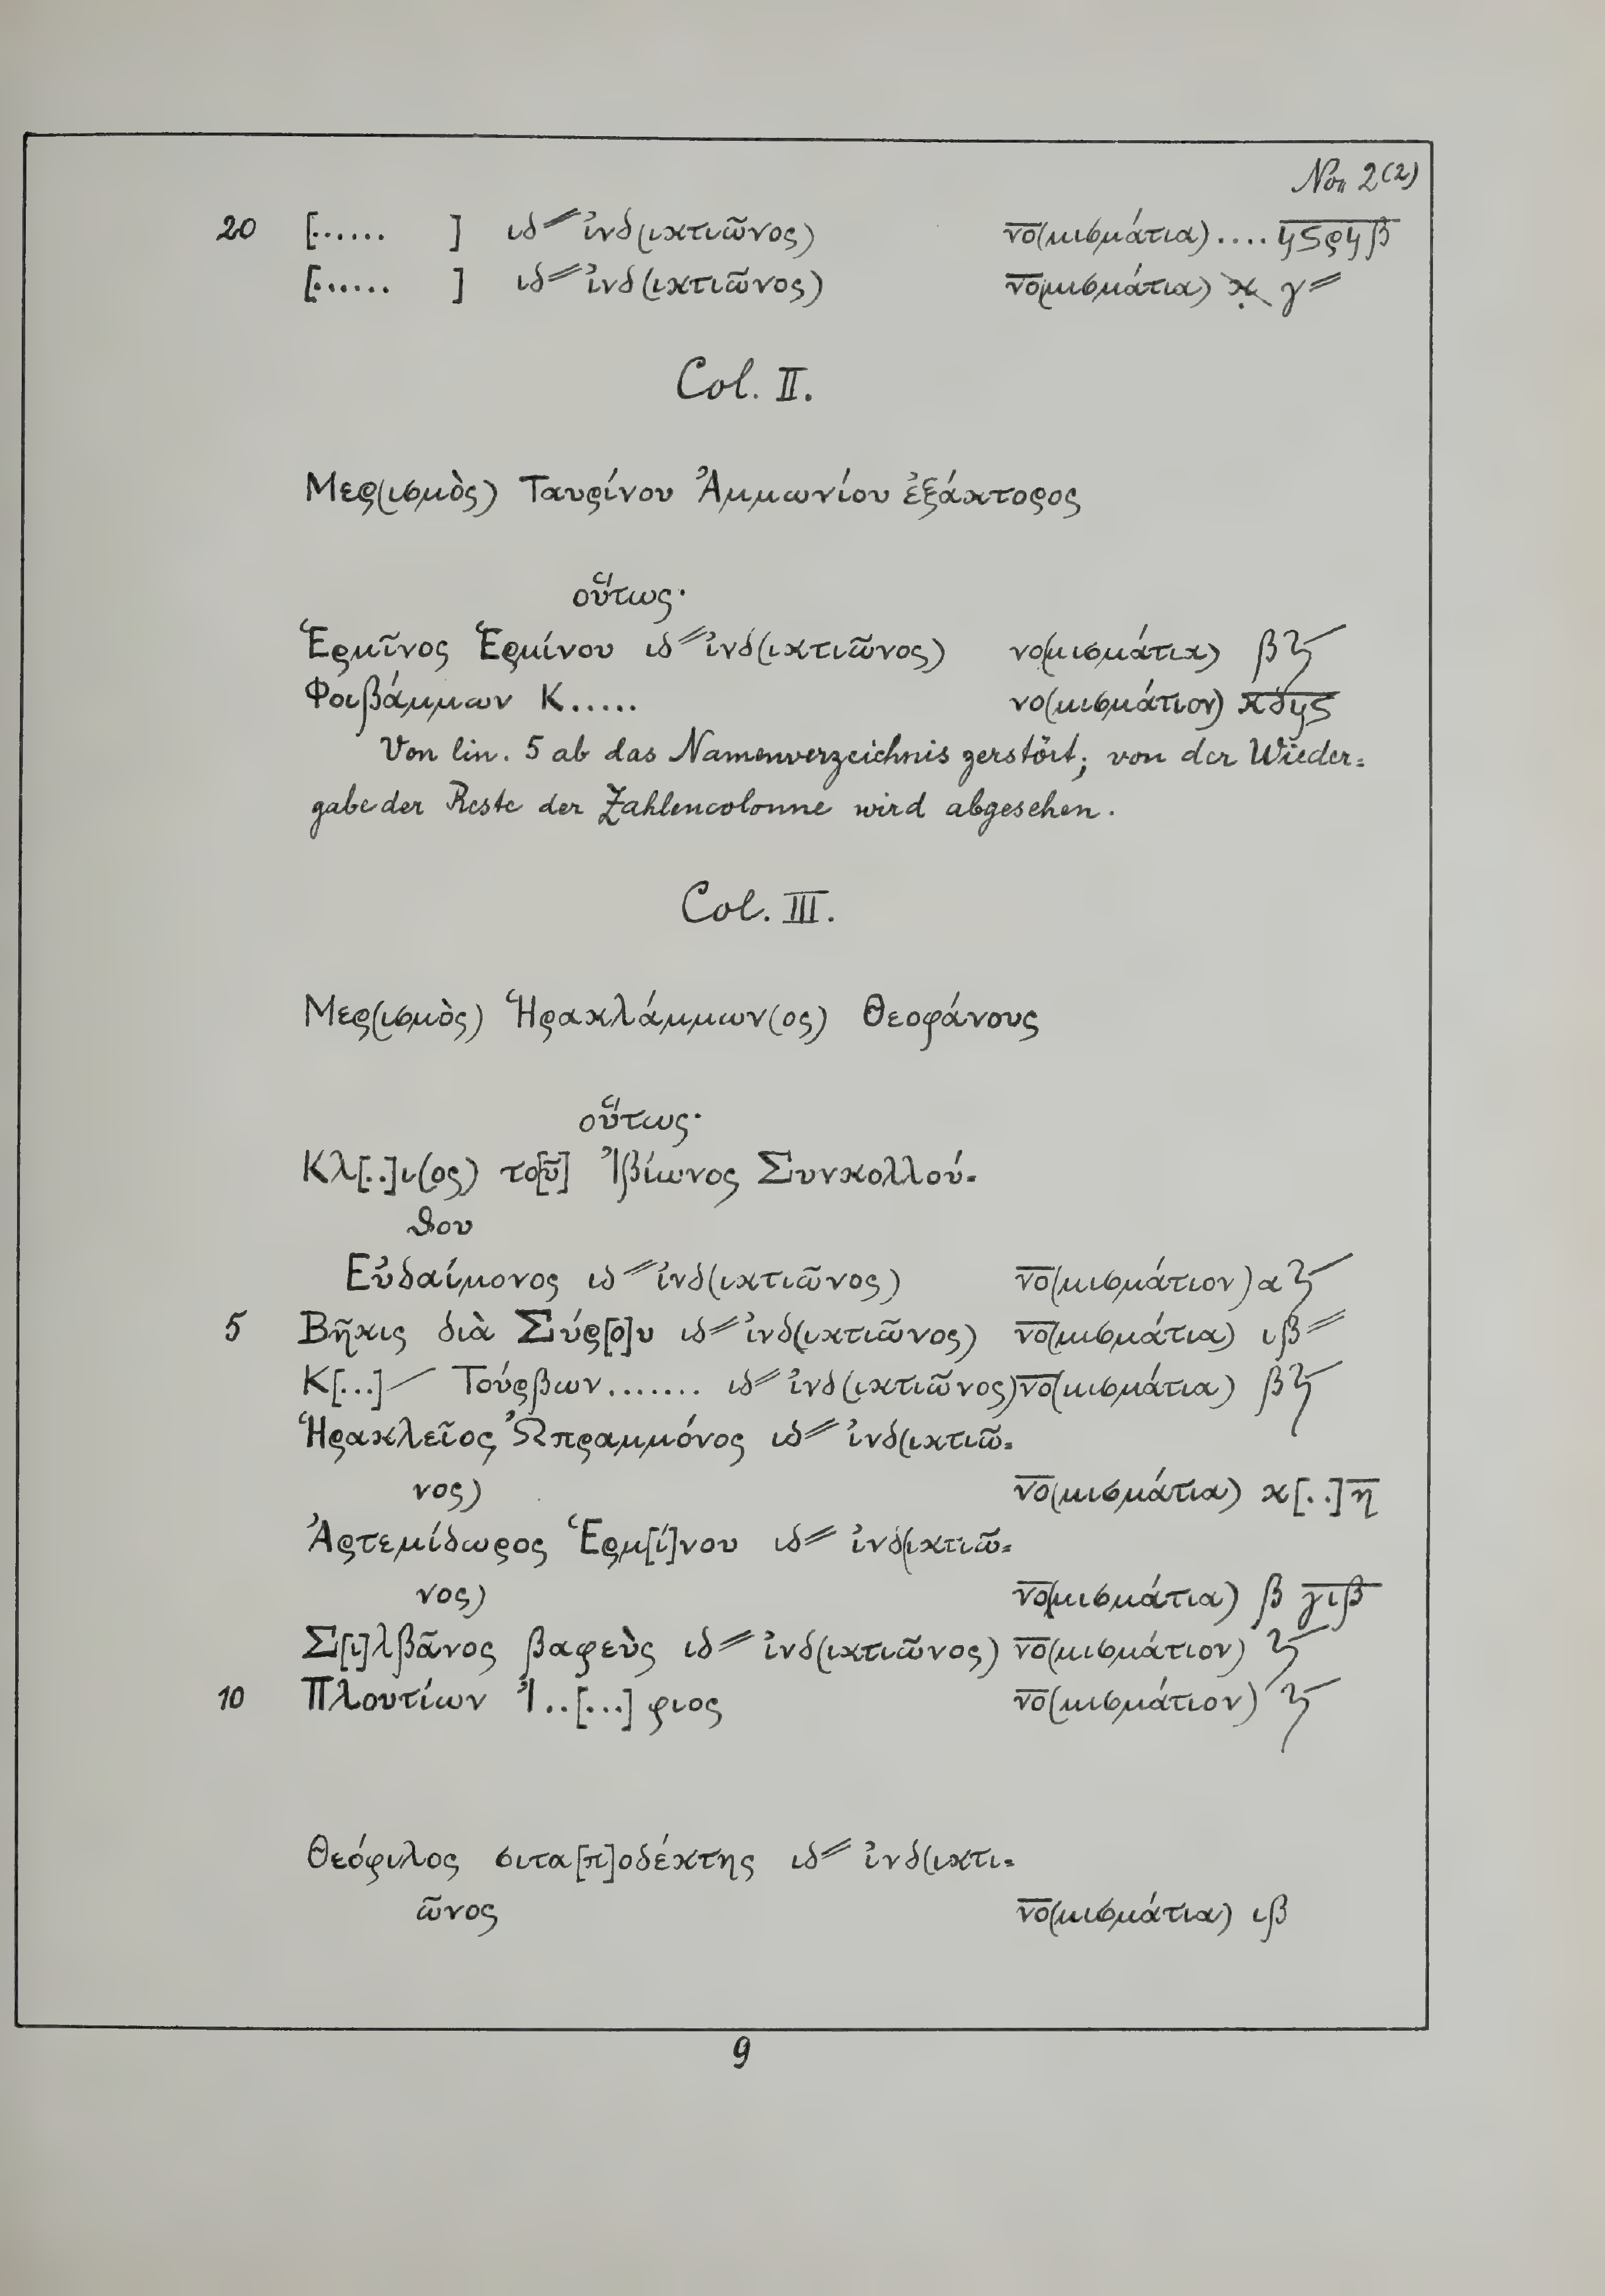 No. 2 (2)
20 [...... ] ιδ// ἰνδ(ικτιῶνος) νο(μισμάτια) .... ϥϛρϥβ
[...... ] ιδ// ἰνδ(ικτιῶνος) νο(μισμάτια) κ γ//
Col. II.
Μερ(ισμὸς) Ταυρίνου Ἀμμωνίου ἐξάκτορος
οὕτως·
Ἑρμῖνος Ἑρμίνου ιδ// ἰνδ(ικτιῶνος) νο(μισμάτια) β
Φοιβάμμων Κ..... νο(μισμάτιον) κδϥϛ
Von lin. 5 ab das Namenverzeichnis zerstört; von der Wieder=
gabe der Reste der Zahlencolonne wird abgesehen.
Col. III.
Μερ(ισμὸς) Ἡρακλάμμων(ος) Θεοφάνους
οὕτως·
Κλ[..]ι(ος) το[ῦ] Ἰβίωνος Συνκολλού=
θου
Εὐδαίμονος ιδ// ἰνδ(ικτιῶνος) νο(μισμάτιον) α
5 Βῆκις διὰ Σύρ[ο]υ ιδ// ἰνδ(ικτιῶνος) νο(μισμάτια) ιβ//
Κ[...]/ Τούρβων....... ιδ// ἰνδ(ικτιῶνος) νο(μισμάτια) β
Ἡρακλεῖος Ὡπραμμόνος ιδ// ἰνδ(ικτιῶ=
νος) νο(μισμάτια) κ[..]η
Ἀρτεμίδωρος Ἑρμ[ί]νου ιδ// ἰνδ(ικτιῶ=
νος) νο(μισμάτια) β γιβ
Σ[ι]λβᾶνος βαφεὺς ιδ// ἰνδ(ικτιῶνος) νο(μισμάτιον)
10 Πλουτίων Ἰ..[...]φιος νο(μισμάτιον)
Θεόφιλος σιτα[π]οδέκτης ιδ// ἰνδ(ικτι=
ῶνος νο(μισμάτια) ιβ
9